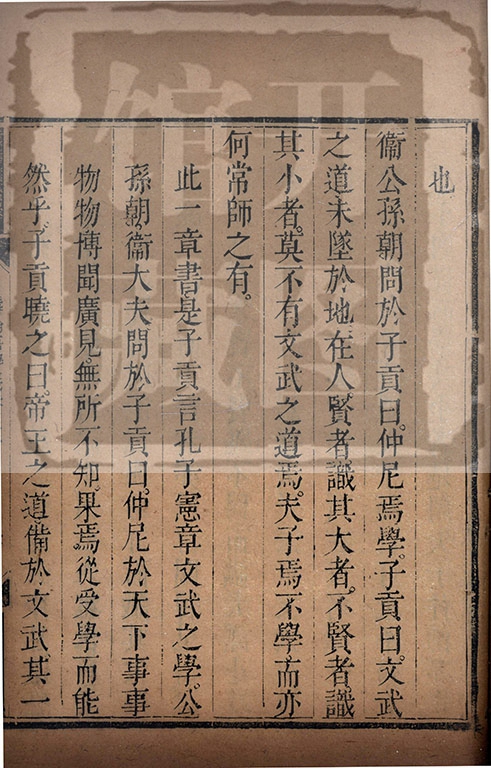 也
衞公孫朝問於子貢曰。仲尼焉學。子貢曰。文武
之道未墜於地在人。賢者識其大者。不賢者識
其小者。莫不有文武之道焉。夫子焉不學。而亦
何常師之有。
此一章書。是子貢言孔子憲章文武之學。公
孫朝衞大夫問於子貢曰。仲尼於天下事事
物物。博聞廣見。無所不知。果焉從受學而能
然乎。子貢曉之曰。帝王之道備於文武。其一